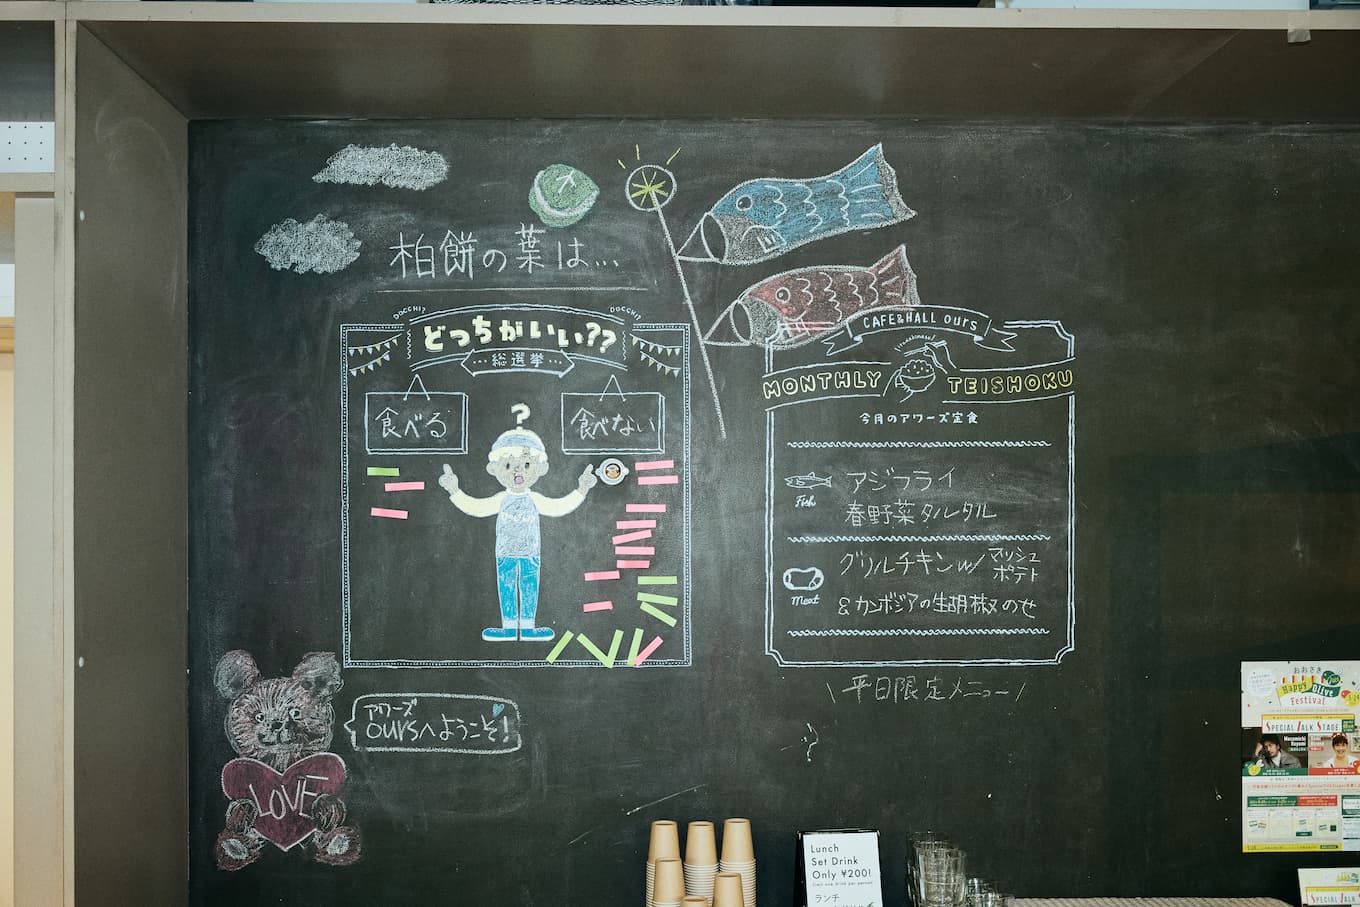 柏餅の葉は...
DOCCHI?
DOCCHI?
どっちがいい??
総選挙
食べる
食べない
?
CAFE&HALL ours
MONTHLY TEISHOKU
今月のアワーズ定食
Fish
アジフライ
春野菜タルタル
Meat
グリルチキン w/ マッシュ
ポテト
&カンボジアの生胡椒のせ
\平日限定メニュー/
アワーズ
oursへようこそ!
LOVE
Lunch
Set Drink
Only ¥200!
limit one drink per person
ランチ
おおさき
Happy Olive
Festival
SPECIAL TALK STAGE
SPECIAL TALK